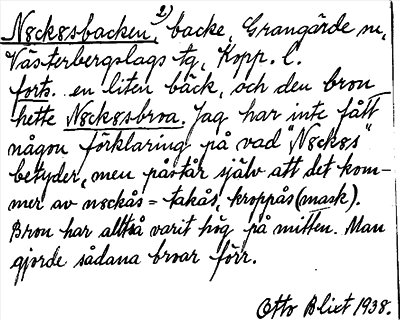 Nøckøsbacken,²⁾ backe, Grangärde sn,
Västerbergslags tg, Kopp. l.
forts. en liten bäck, och den bron
hette Nøckøsbroa. Jag har inte fått
någon förklaring på vad "Nøckøs"
betyder, men påstår själv att det kom-
mer av nøckås = takås, kroppås (mask).
Bron har alltså varit hög på mitten. Man
gjorde sådana broar förr.
Otto Blixt 1938.